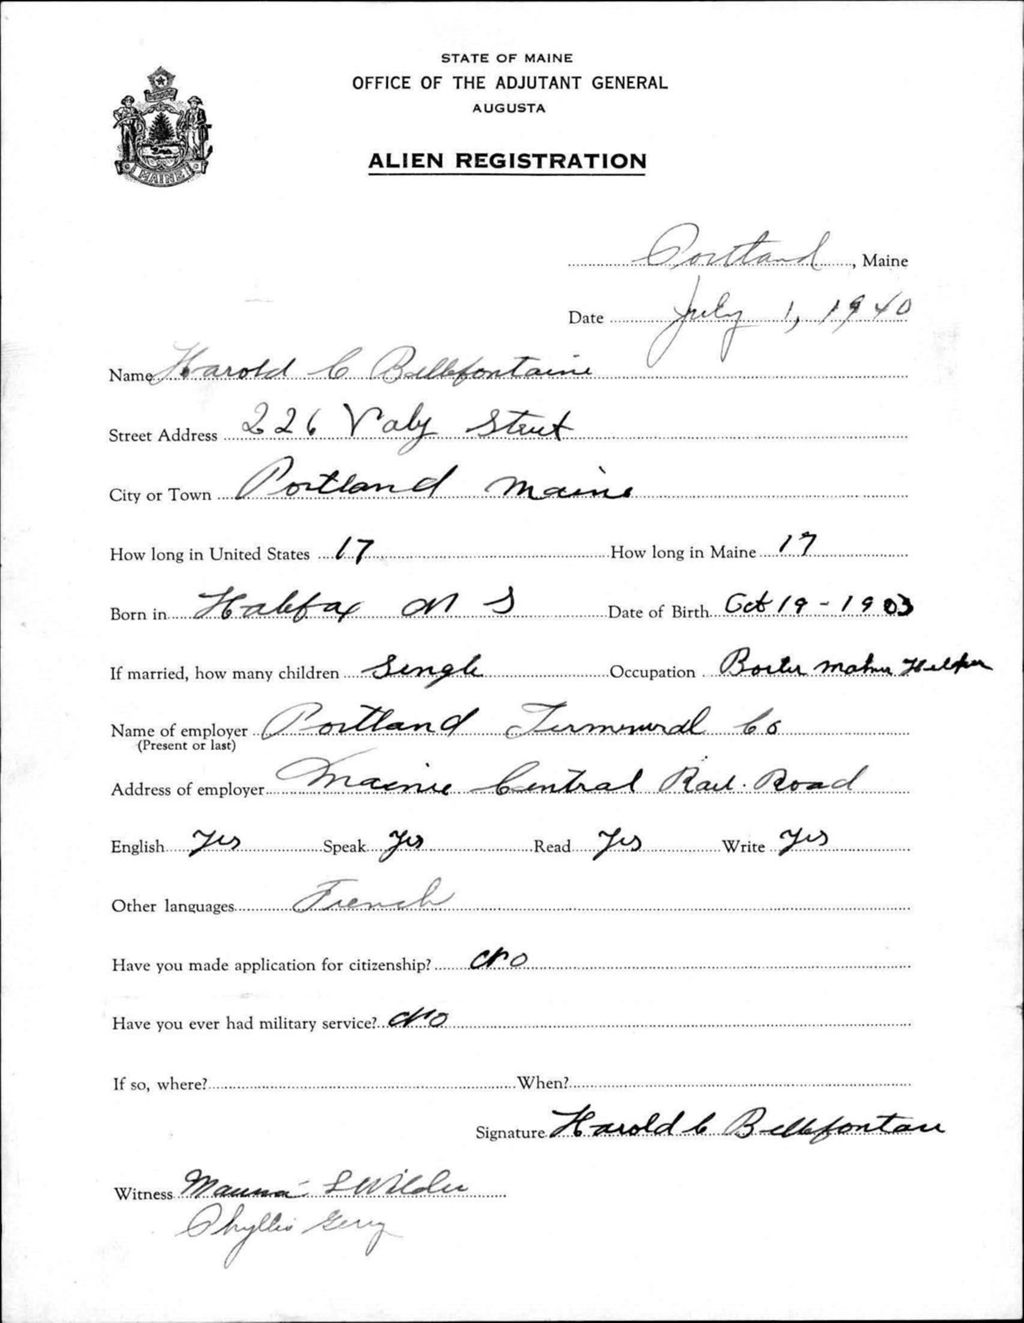 STATE OF MAINE
OFFICE OF THE ADJUTANT GENERAL
AUGUSTA
ALIEN REGISTRATION
MAINE
Portland, Maine
Date July 1, 1940
Name Harold C Bellefontaine
Street Address 226 Street
City or Town Portland Maine
How long in United States 17 How long in Maine 17
Born in Halifax N S Date of Birth Oct 19-1903
If married, how many children Single Occupation Boiler Maker Helper
Name of employer Portland Terminal Co
(Present or last)
Address of employer Maine Central Rail Road
English Yes Speak Yes Read Yes Write Yes
Other languages French
Have you made application for citizenship? No
Have you ever had military service? No
If so, where? When?
Signature Harold C Bellefontaine
Witness Wilder
Phyllis Gerry